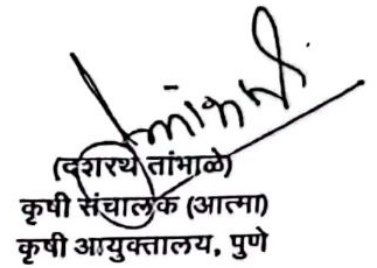 (दशरथ तांभाळे)
कृषी संचालक (आत्मा)
कृषी आयुक्तालय, पुणे